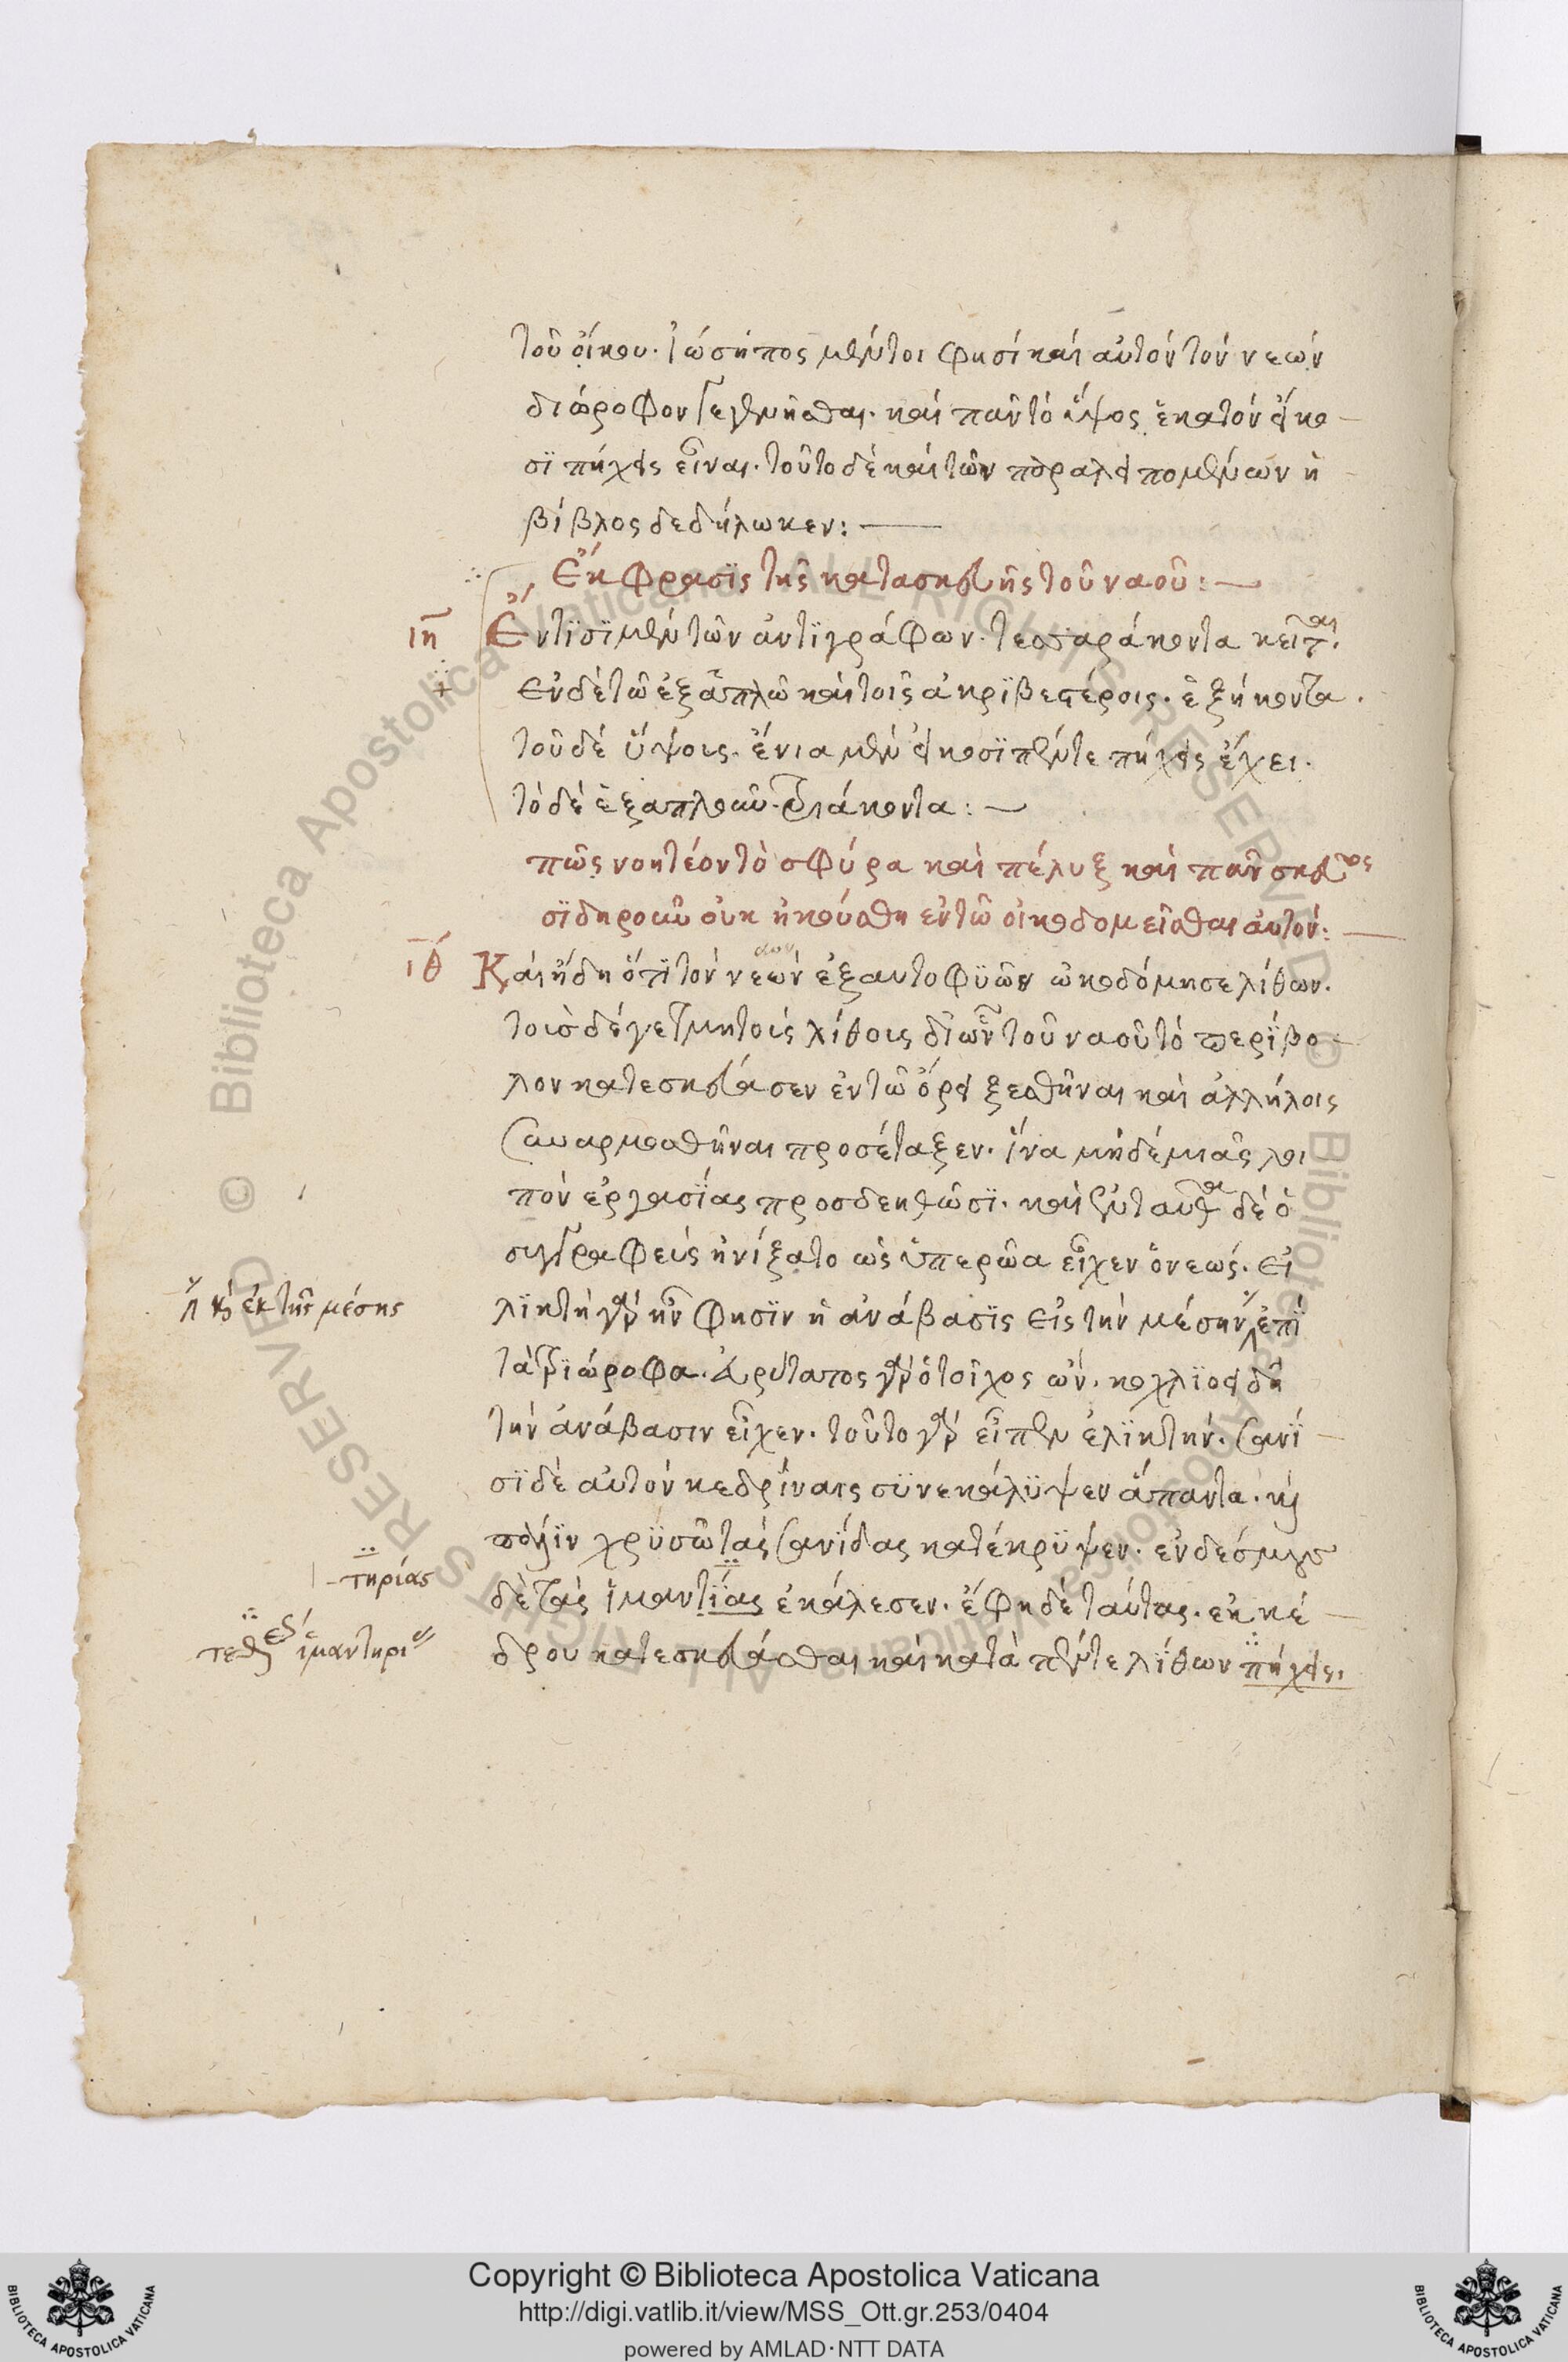 τοῦ οἴκου. ἰώσηπος μέντοι φησί καὶ αὐτόν τόν νεών
διώροφον γεγενῆσθαι. καὶ πᾶν τό ὕψος ἑκατόν εἴκο-
σϊ πήχεις εἶναι. τοῦτο δὲ καὶ τῶν παραλειπομένων ἡ
βίβλος δεδήλωκεν:—
Ἔκφρασϊς τῆς κατασκευῆς τοῦ ναοῦ:—
ιη Ἔν τϊσϊ μέν τῶν ἀντϊγράφων. τεσσαράκοντα κεῖται.
ἐν δὲ τῶ ἑξαπλῶ καὶ τοῖς ἀκρϊβεστέροις. ἑξήκοντα.
τοῦ δέ ὕψοις. ἔνια μέν εἴκοσϊ πέντε πήχεις ἔχει.
τὸ δέ ἑξαπλοῦν. τριάκοντα:—
πῶς νοητέον τὸ σφύρα καὶ πέλυξ καὶ πᾶν σκεῦος
σϊδηροῦν οὐκ ἠκούσθη ἐν τῶ οἰκοδομεῖσθαι αὐτόν:—
ιθ Καί ἤδη ὅτϊ τόν νεών ἐξ αυτοφϋῶν ὠκοδόμησε λίθων.
τοισ δέ γε τμητοίς λίθοις δι ὧν τοῦ ναοῦ τό περΐβο-
λον κατεσκεύασεν ἐν τῶ ὄρει ξεσθῆναι καὶ ἀλλήλοις
συναρμοσθῆναι προσέταξεν. ἵνα μηδέ μιᾶς λοι
πόν ἐργασΐας προσδεηθῶσϊ. καὶ ἐνταῦθα δέ ὁ
συγγραφεύς ἠνίξατο ὡς ὑπερῶα εἶχεν ὁ νεώς. εἱ
λϊκτή γάρ ἦν φησϊν ἡ ἀνάβασϊς εἰς τήν μέσην ἐπΐ
ἢ καὶ ἐκ τῆς μέσης
τὰ τριώροφα. ἀρύτατος γάρ ὁ τοῖχος ὤν. κοχλϊοειδῆ
τήν ἀνάβασιν εἶχεν. τοῦτο γάρ εἶπεν ἑλϊκτήν. σανΐ-
σϊ δὲ αὐτόν κεδρΐναις συνεκάλϋψεν ἅπαντα. καὶ
πάλϊν χρϋσῶ τάς σανΐδας κατέκρϋψεν. ἐνδέσμους
δὲ τὰς ἱμαντΐας ἐκάλεσεν. ἔφη δέ ταύτας. ἐκ κέ-
-τηρίας
δρου κατεσκευάσθαι καὶ κατὰ πέντε λΐθων πήχεις